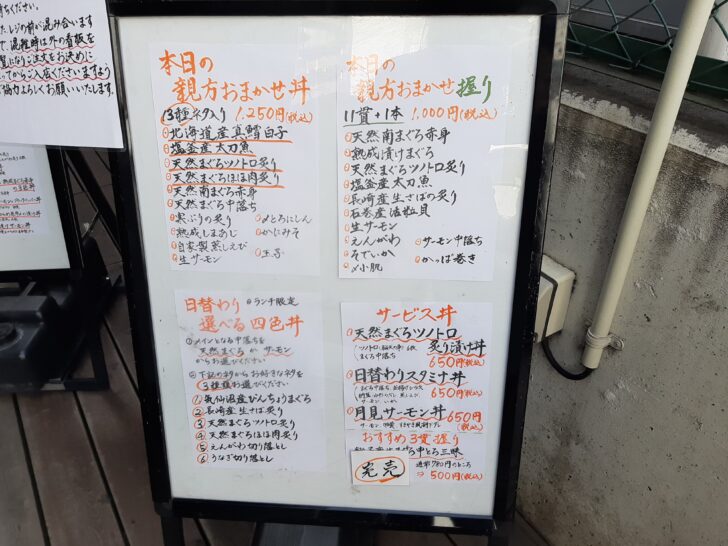 レジの前が混み合います
混雑時は外の看板を
ご協力よろしくお願いいたします。
本日の
親方おまかせ丼
13種ネタ入り 1,250円(税込)
北海道産真鱈白子
塩釜産太刀魚
天然まぐろツノトロ炙り
天然まぐろほほ肉炙り
天然南まぐろ赤身
天然まぐろ中落ち
寒ぶりの炙り
〆とろにしん
熟成しまあじ
かにみそ
自家製蒸しえび
生サーモン
玉子
本日の
親方おまかせ握り
11貫+1本 1,000円(税込)
天然南まぐろ赤身
熟成漬けまぐろ
天然まぐろツノトロ炙り
塩釜産太刀魚
長崎産生さばの炙り
石巻産活粒貝
生サーモン
えんがわ
サーモン中落ち
そでいか
かっぱ巻き
〆小肌
日替わり ランチ限定
選べる四色丼
メインとなる中落ちを
天然まぐろ か サーモン
からお選びください
下記のネタからお好きなネタを
3種類お選びください
① 気仙沼産びんちょうまぐろ
② 長崎産生さば炙り
③ 天然まぐろツノトロ炙り
④ 天然まぐろほほ肉炙り
⑤ えんがわ切り落とし
⑥ うなぎ切り落とし
サービス丼
天然まぐろツノトロ
炙り漬け丼
まぐろ中落ち
650円(税込)
日替わりスタミナ丼
650円(税込)
サーモン、いか
月見サーモン丼 650円
(税込)
おすすめ3貫握り
中とろ三昧
完売
通常780円のところ
⇒500円(税込)